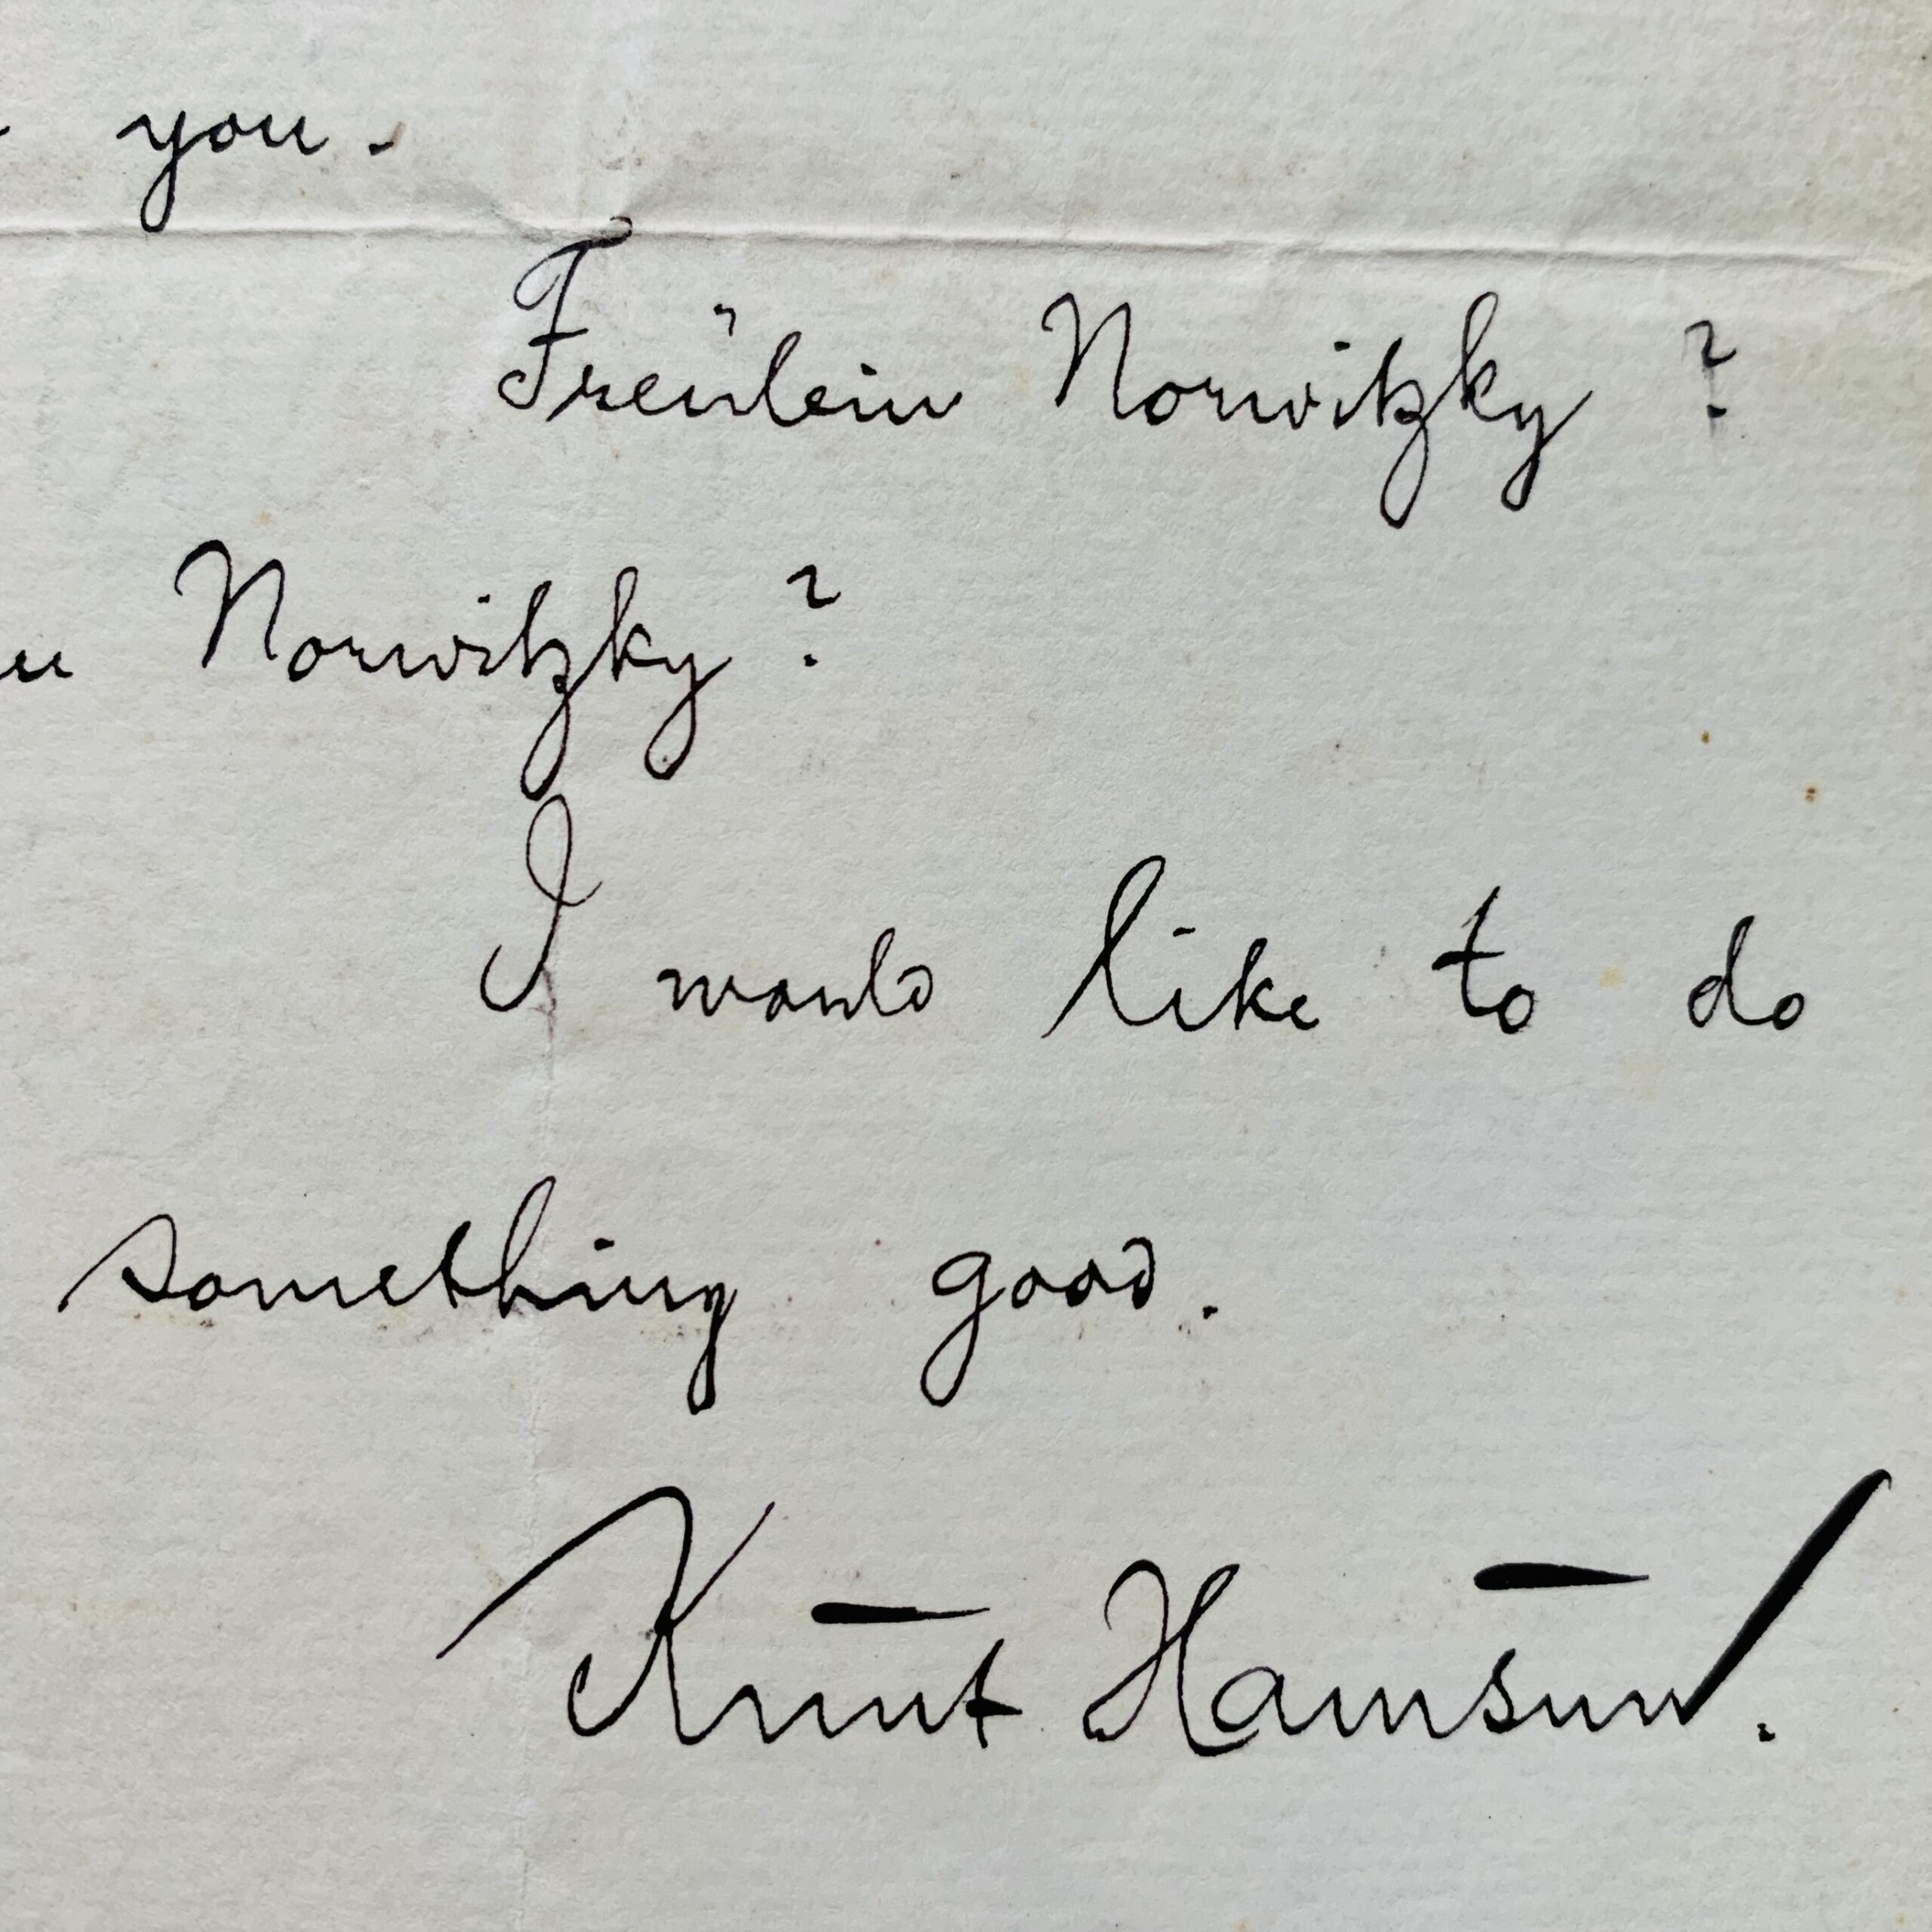 you.
Freülein Norwitzky ?
Norwitzky ?
I would like to do
something good.
Knut Hamsun.